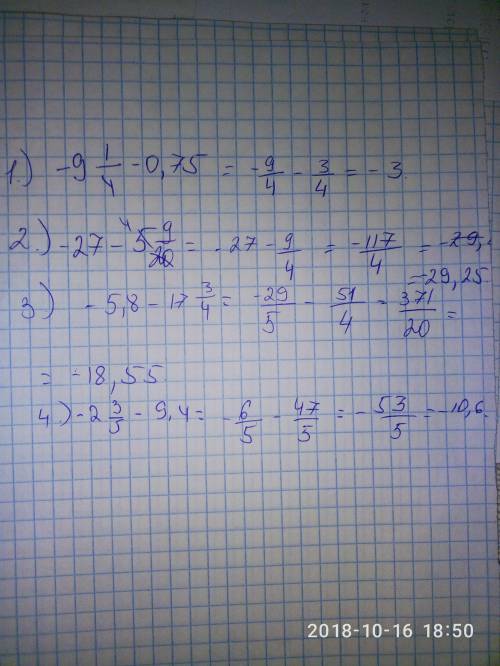 1.) -9 1/4 - 0,75 = -9/4 - 3/4 = -3.
2.) -27 - 5 9/20 = -27 - 9/4 = -117/4 = -29,
= -29,25
3) -5,8 - 17 3/4 = -29/5 - 51/4 - 371/20 =
= -18,55
4.) -2 3/5 - 9,4 = -6/5 - 47/5 = -53/5 = -10,6.
2018-10-16 18:50